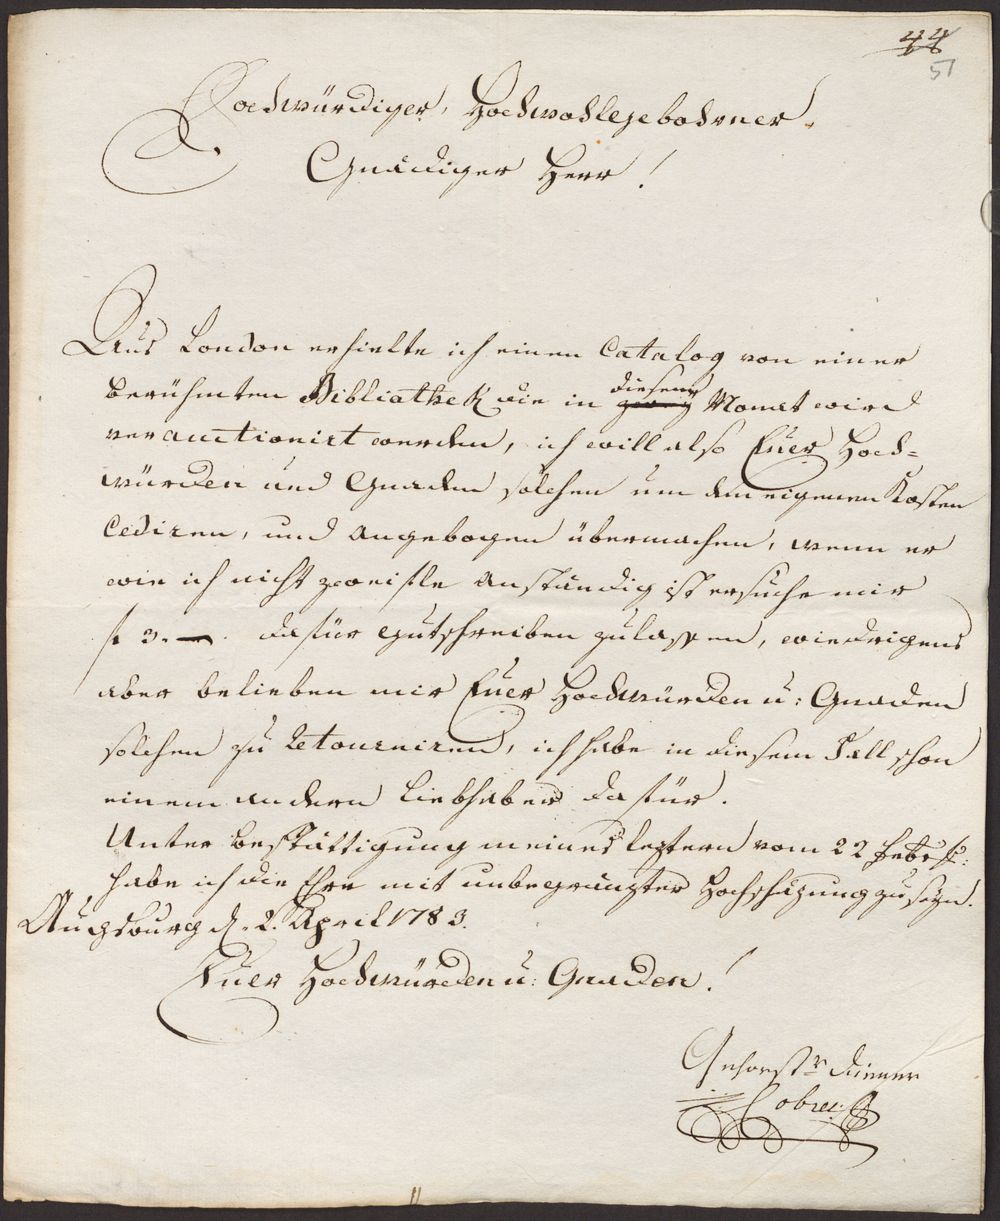 44
51
Hochwürdiger, Hochwohlgebohrner,
Gnädiger Herr!
Aus London erhielte ich einen Catalog von einer
berühmten Bibliothek die in diesem Monat wird
verauctionirt werden, ich will also Euer Hoch-
würden und Gnaden solchen um den eigenen Kosten
cediren, und angebogen übermachen, wenn er
wie ich nicht zweifle anständig ist ersuche mir
f 3.— dafür gutschreiben zulassen, wiedrigens
aber belieben mir Euer Hochwürden u: Gnaden
solchen zu retourniren, ich habe in diesem Fall schon
einem andern Liebhaber dafür.
Unter bestättigung meines leztern vom 22 Febr:
habe ich die Ehre mit unbegränzter Hochschäzung zu seyn.
Augsburg d. 2. April 1783.
Euer Hochwürden u: Gnaden!
Gehorstr diener
Cobres